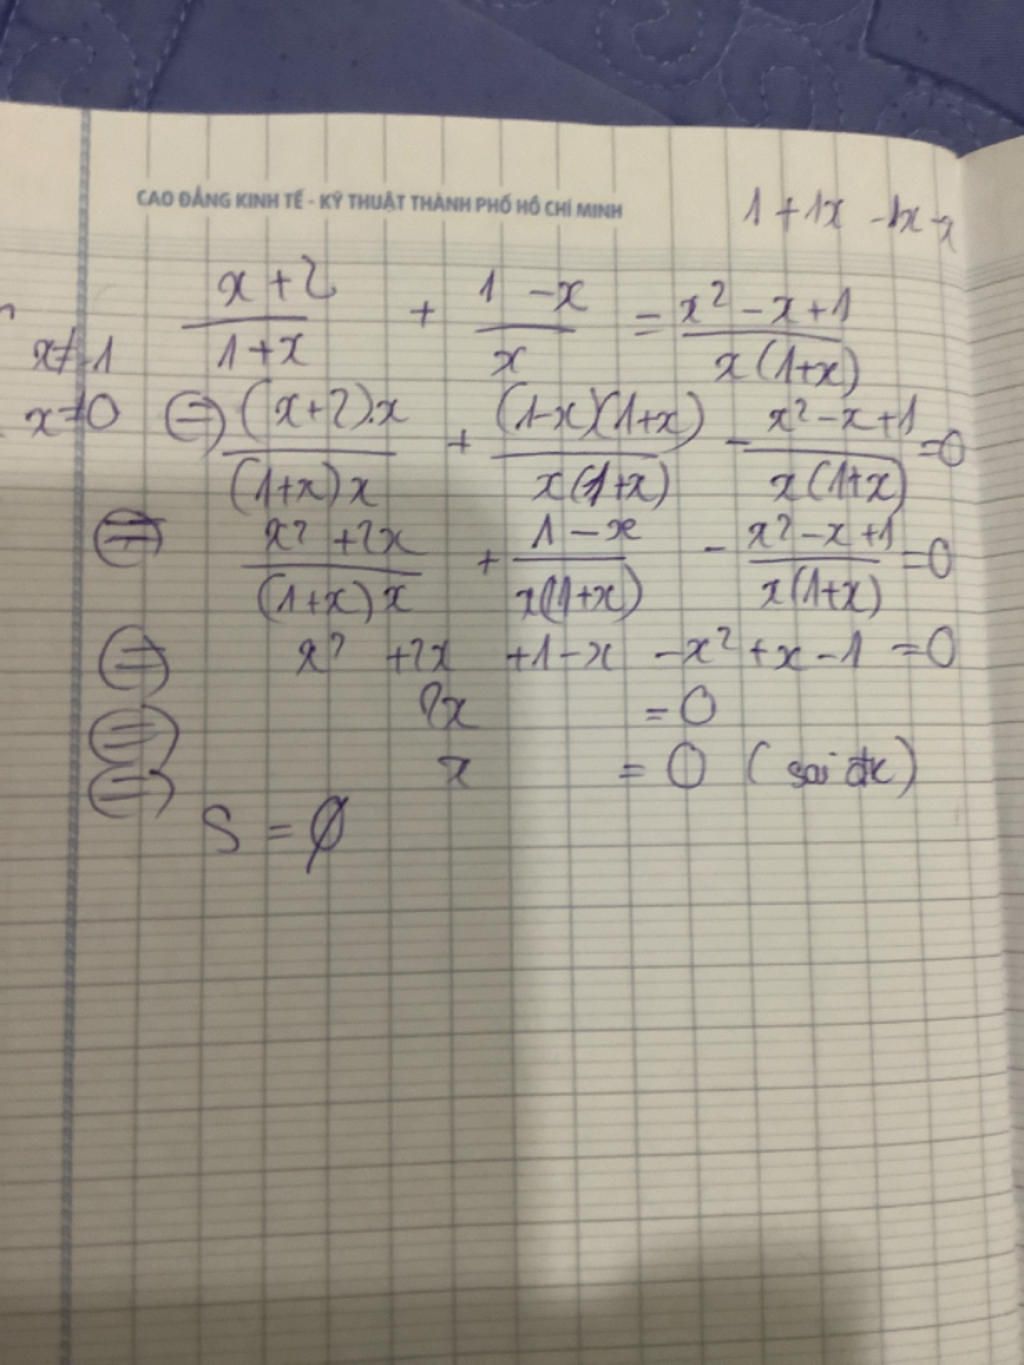 CAO ĐẲNG KINH TẾ - KỸ THUẬT THÀNH PHỐ HỒ CHÍ MINH
1 + 1x - 1x - x
(x + 2)/(1 + x) + (1 - x)/x = (x² - x + 1)/(x(1+x))
x ≠ -1
x ≠ 0
⇔ ((x+2).x)/((1+x)x) + ((1-x)(1+x))/(x(1+x)) - (x² - x + 1)/(x(1+x)) = 0
⇔ (x² + 2x)/((1+x)x) + (1 - x)/(x(1+x)) - (x² - x + 1)/(x(1+x)) = 0
⇔ x² + 2x + 1 - x - x² + x - 1 = 0
⇔ 2x = 0
⇔ x = 0 (sai đk)
S = ∅